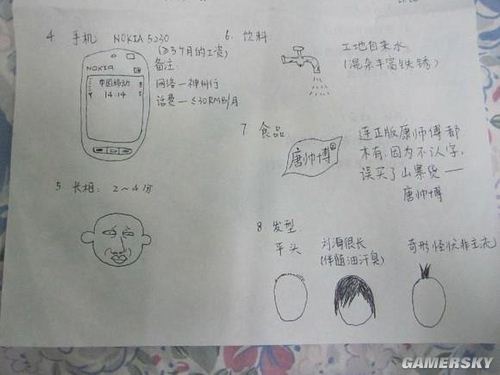 4 手机 NOKIA 5230
(≥3个月的工资)
备注
网络一神州行
话费一≤30RMB/月
NOKIA
中国移动
14:14
5 长相: 2~4分
6. 饮料
工地自来水
(混杂丰富铁锈)
7 食品
唐帅博®
连正版康师傅都
木有,因为不认字,
误买了山寨货——
唐帅博
8 发型
平头
刘海很长
(伴随油汗臭)
奇形怪状非主流
GAMERSKY